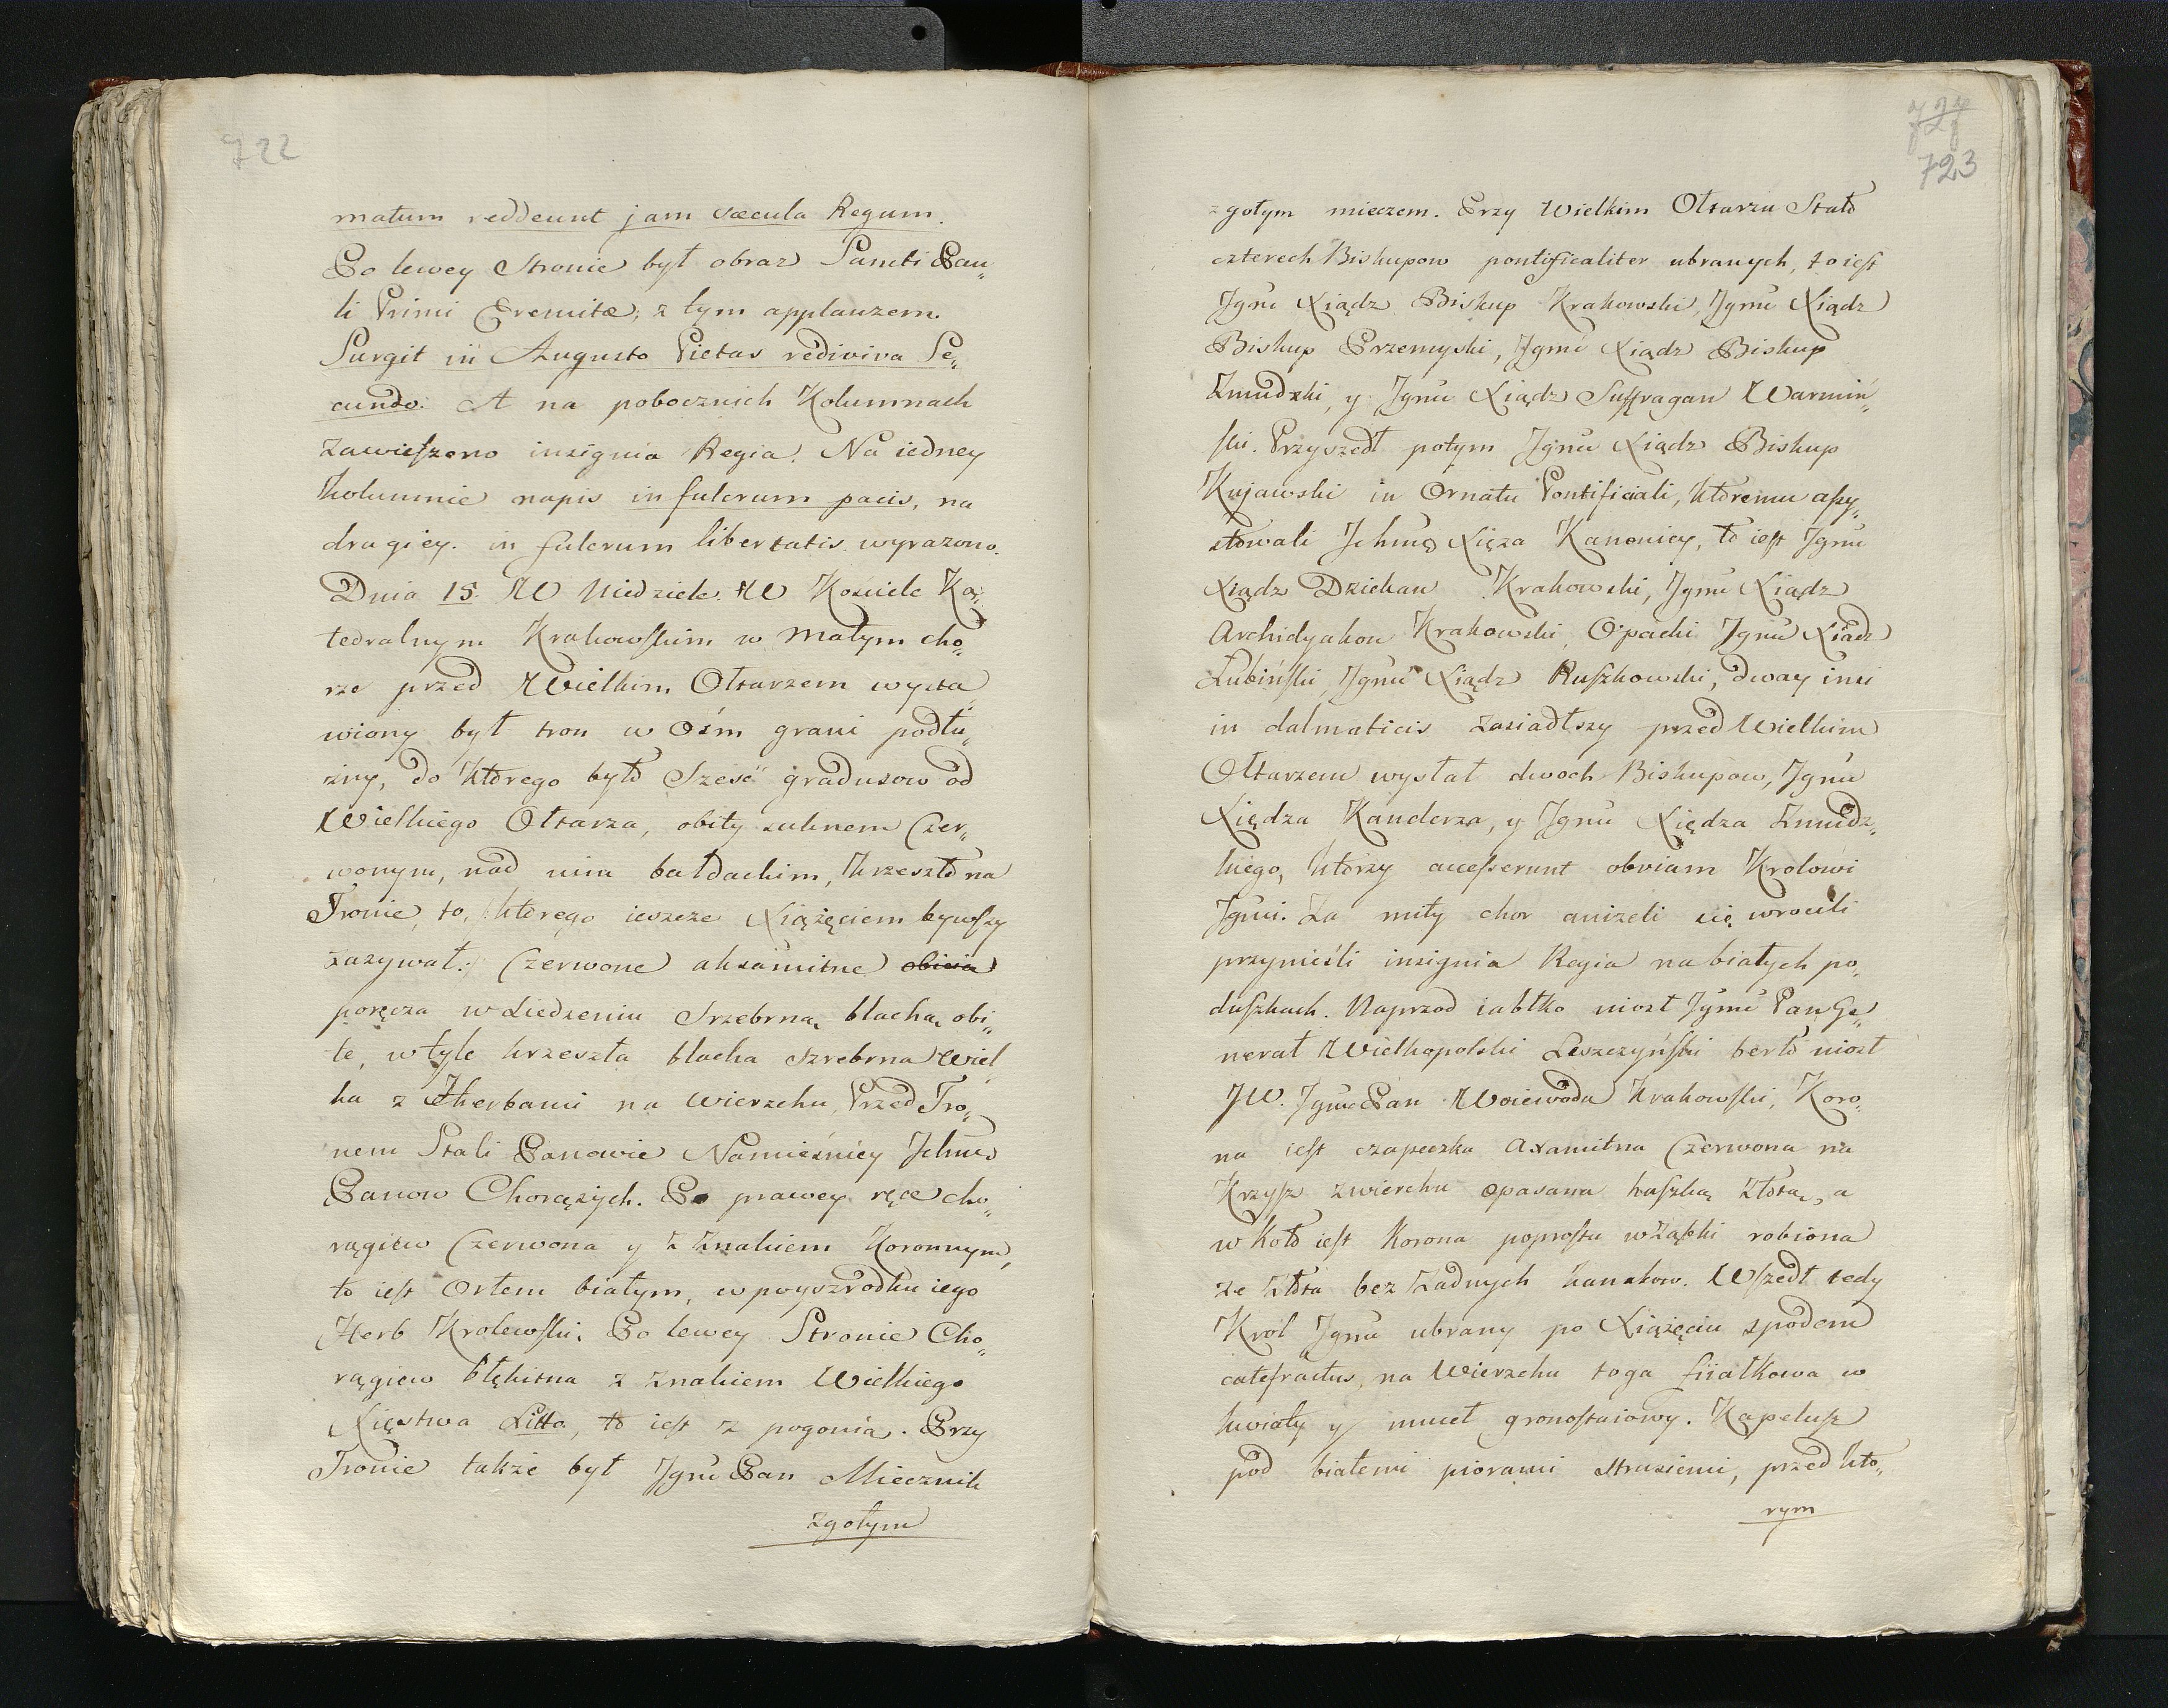 722
matum reddeunt jam sæcula Regum.
Po lewey Stronie był obraz Sancti Pau„
li Primi Eremitæ, z tym applauzem.
Surgit in Augusto Pietas rediviva Se„
cundo. A na pobocznich Kolumnach
zawieszono insignia Regia. Na iedney
kolumnie napis in fulcrum pacis, na
drugiey. in fulcrum libertatis wyrazono.
Dnia 15. W Niedziele. W Kosciele Ka„
tedralnym Krakowskim w małym cho„
rze przed Wielkim Ołtarzem wysta„
wiony był tron w Ośm grani podłu„
zny, do ktorego było Szesć gradusow od
Wielkiego Ołtarza, obity suknem Czer„
wonym, nad nim baldachim, krzeszło na
Tronie to, ktorego ieszcze Xiążęciem bywszy
zazywał: Czerwone aksamitne obicia
poręcza w Siedzeniu Srzebrną blachą obi„
te, w tyle krzeszła blacha szrebrna Wiel„
ka z Herbami na wierzchu, Przed Tro„
nem Stali Panowie Namieśnicy Ichmć
Panow Chorążych. Po prawey ręce cho„
rągiew Czerwona y z znakiem Koronnym,
to iest Orłem białym, w poyszrodku iego
Herb Krolewski. Po lewey Stronie Cho„
rągiew błękitna z znakiem Wielkiego
Xięstwa Litto, to iest z pogonią. Przy
Tronie także był Jgmć Pan Miecznik
zgołym
727
723
zgołym mieczem. Przy Wielkim Ołtarzu Stało
czterech Biskupow pontificaliter ubranych, to iest
Jgmć Xiądz Biskup Krakowski, Jgmć Xiądz
Biskup Przemyski, Jgmć Xiądz Biskup
Zmudzki, y Jgmć Xiądz Suffragan Warmiń„
ski. Przyszedł potym Jgmć Xiądz Biskup
Kujawski in Ornatu Pontificiali, ktoremu assy„
stowali Jchmć Xięza Kanonicy, to iest Jgmć
Xiądz Dziekan Krakowski, Jgmć Xiądz
Archidyakon Krakowski, Opacki Jgmć Xiadz
Łubiński, Jgmć Xiądz Ruszkowski, dway insi
in dalmaticis zasiadłszy przed Wielkim
Ołtarzem wysłał dwoch Biskupow, Jgmć
Xiędza Kanclerza, y Jgmć Xiędza Zmudz„
kiego, ktorzy accesserunt obviam Krolowi
Jgmci. Za mity chor anizeli się wrocili
przynieśli insignia Regia na białych po„
duszkach. Naprzod iabłko niosł Jgmć Pan Ge„
nerał Wielkopolski Leszczyński berło niosł
JW. Jgmć Pan Woiewoda Krakowski, Koro„
na iest czapeczka axamitna Czerwona na
Krzysz zwierchu opasana haszką złotą, a
w koło iest Korona poprostu w ząbki robiona
ze złota bez żadnych kanakow. Wszedł tedy
Krol Jgmć ubrany po Xiążęciu spodem
catefractus, na Wierzchu toga fiiałkowa w
kwiaty y mucet gronostaiowy. Kapelusz
pod białemi piorami strusiemi, przed kto„
rym